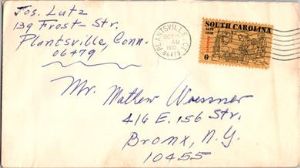 Jos. Lutz
139 Frost Str.
Plantsville, Conn.
06479
PLANTSVILLE, CT
06479
SOUTH CAROLINA
Mr. Matlow Woessner
416 E. 156 Str.
Bronx, N.Y.
10455